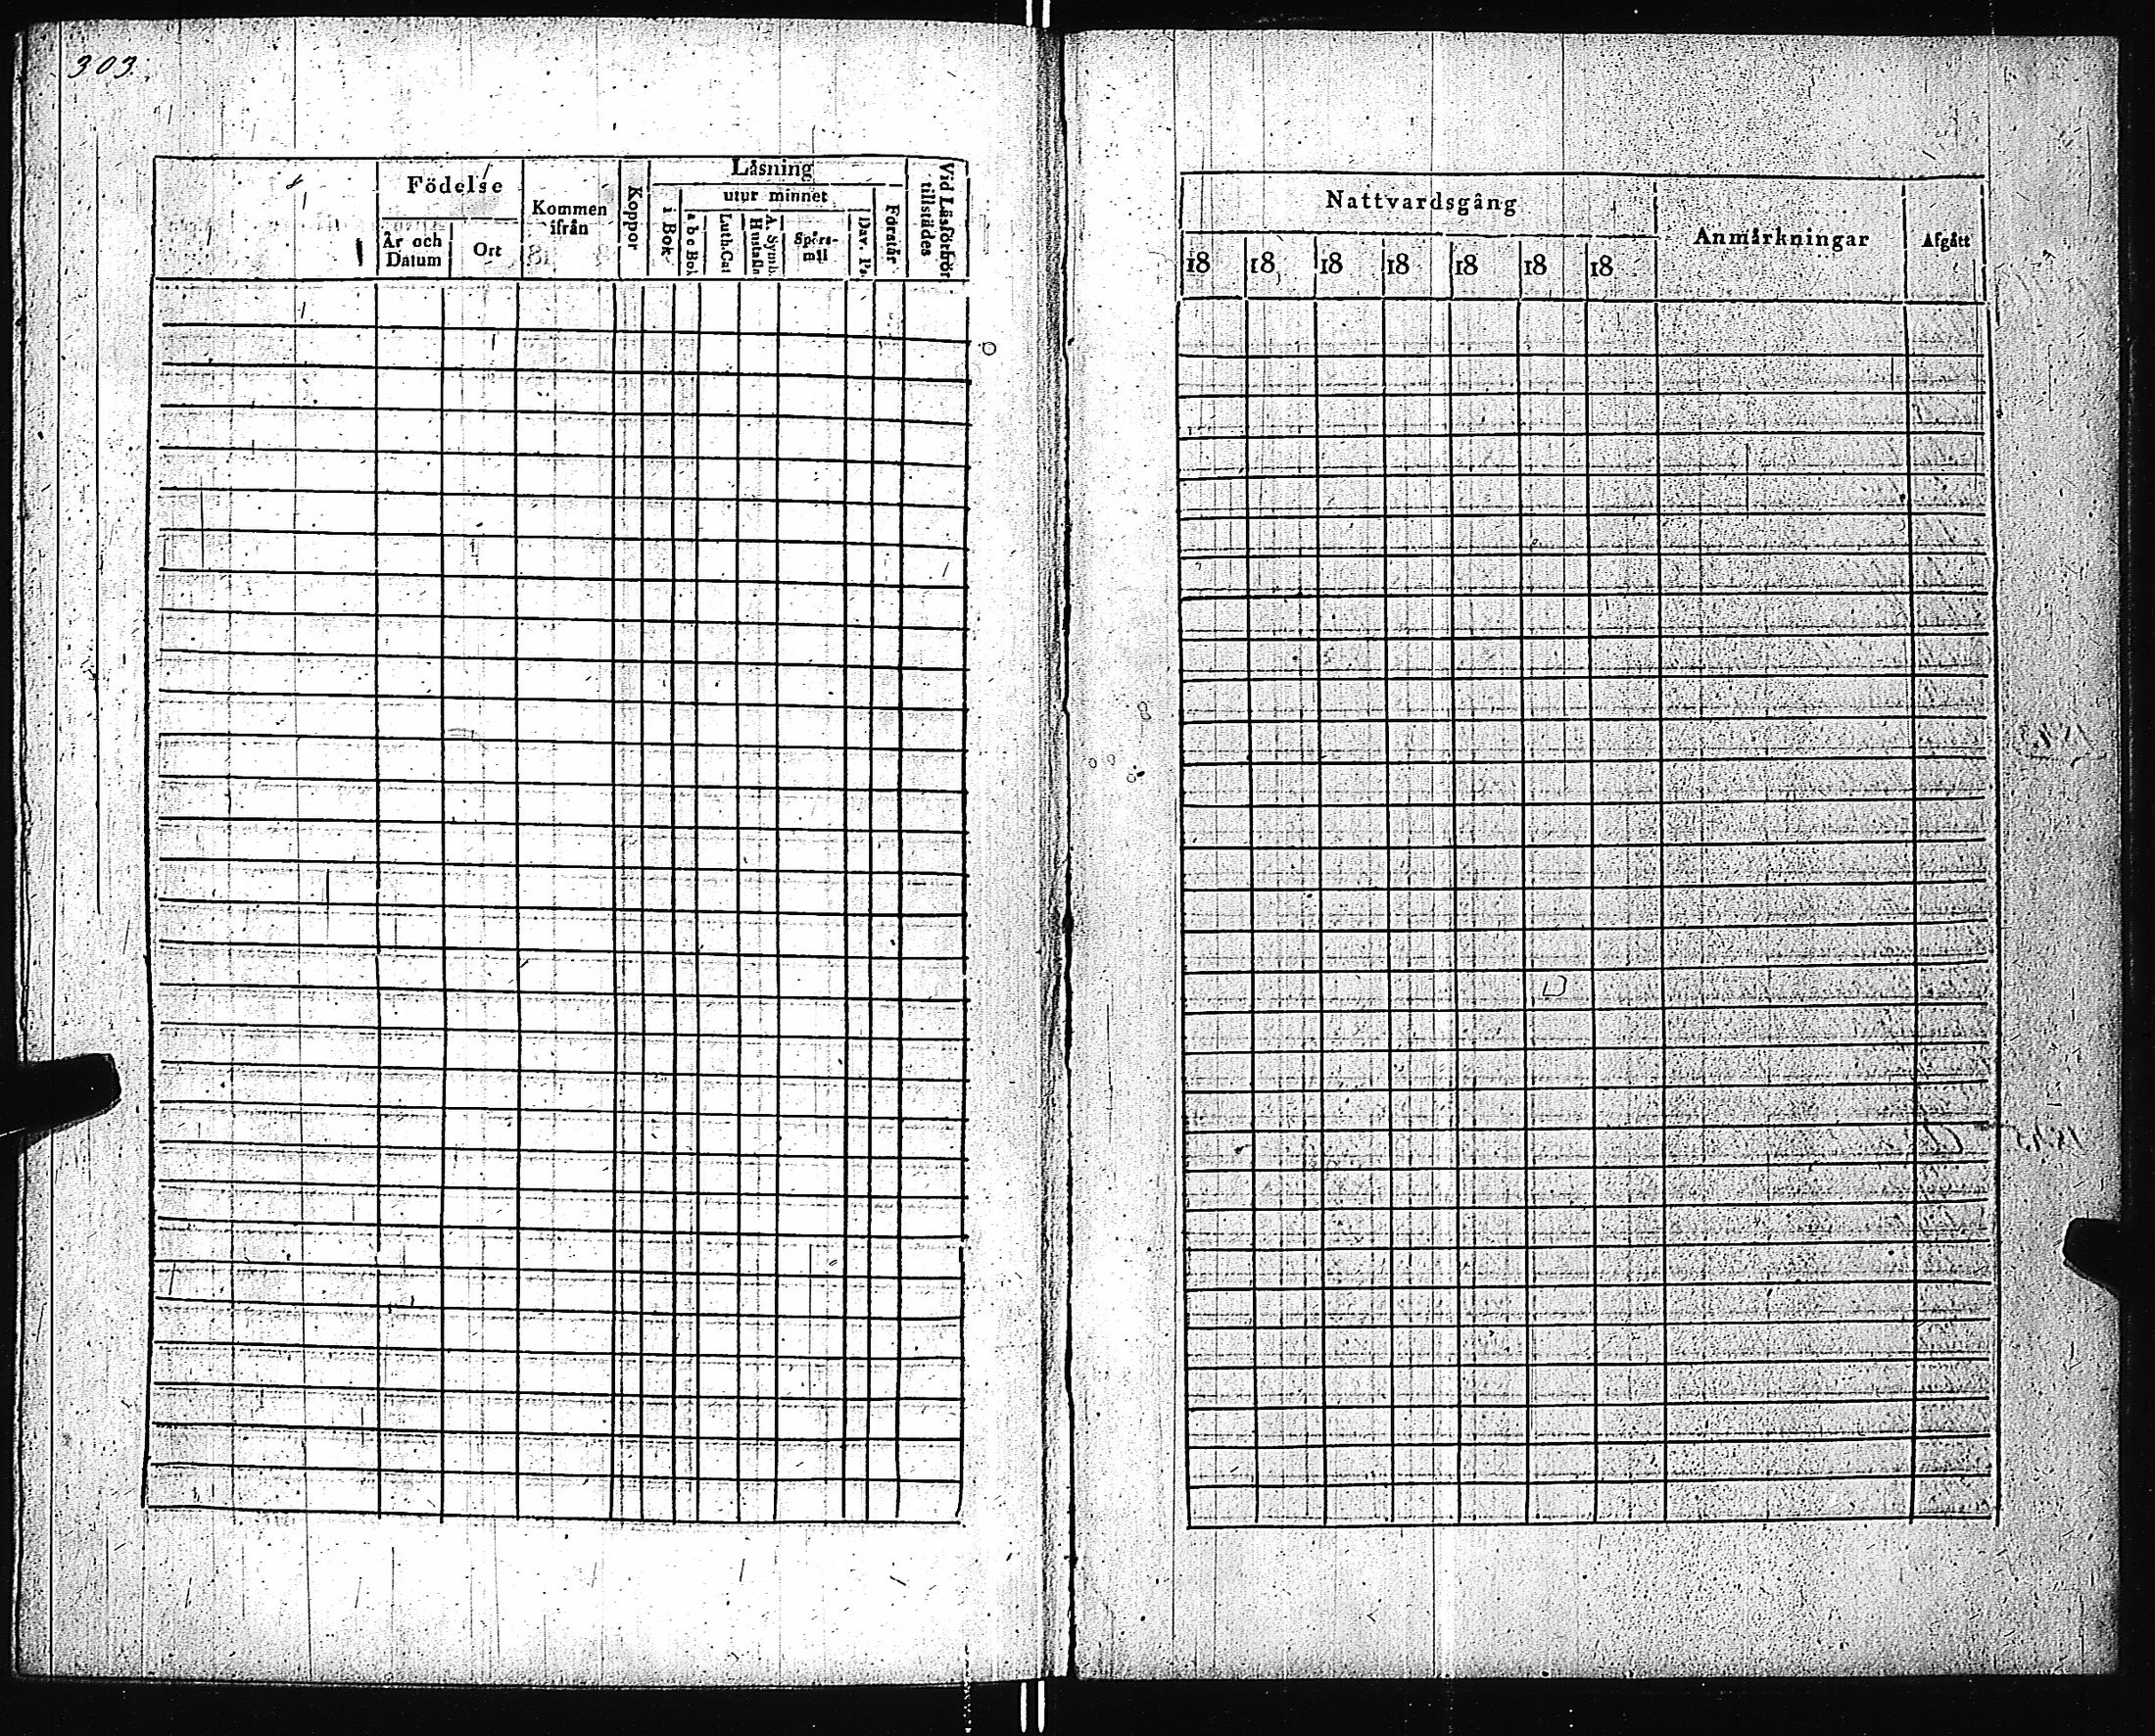 303.
Födelse
År och Datum
Ort
Kommen ifrån
Koppor
Läsning
i Bok
utur minnet
a b c Bok
Luth. Cat
A. Symb. Hustafla
Spörs-mål
Dav. Ps.
Förstår
Vid Läsförhör tillstädes
Nattvardsgång
18 18 18 18 18 18 18
Anmärkningar
Afgått